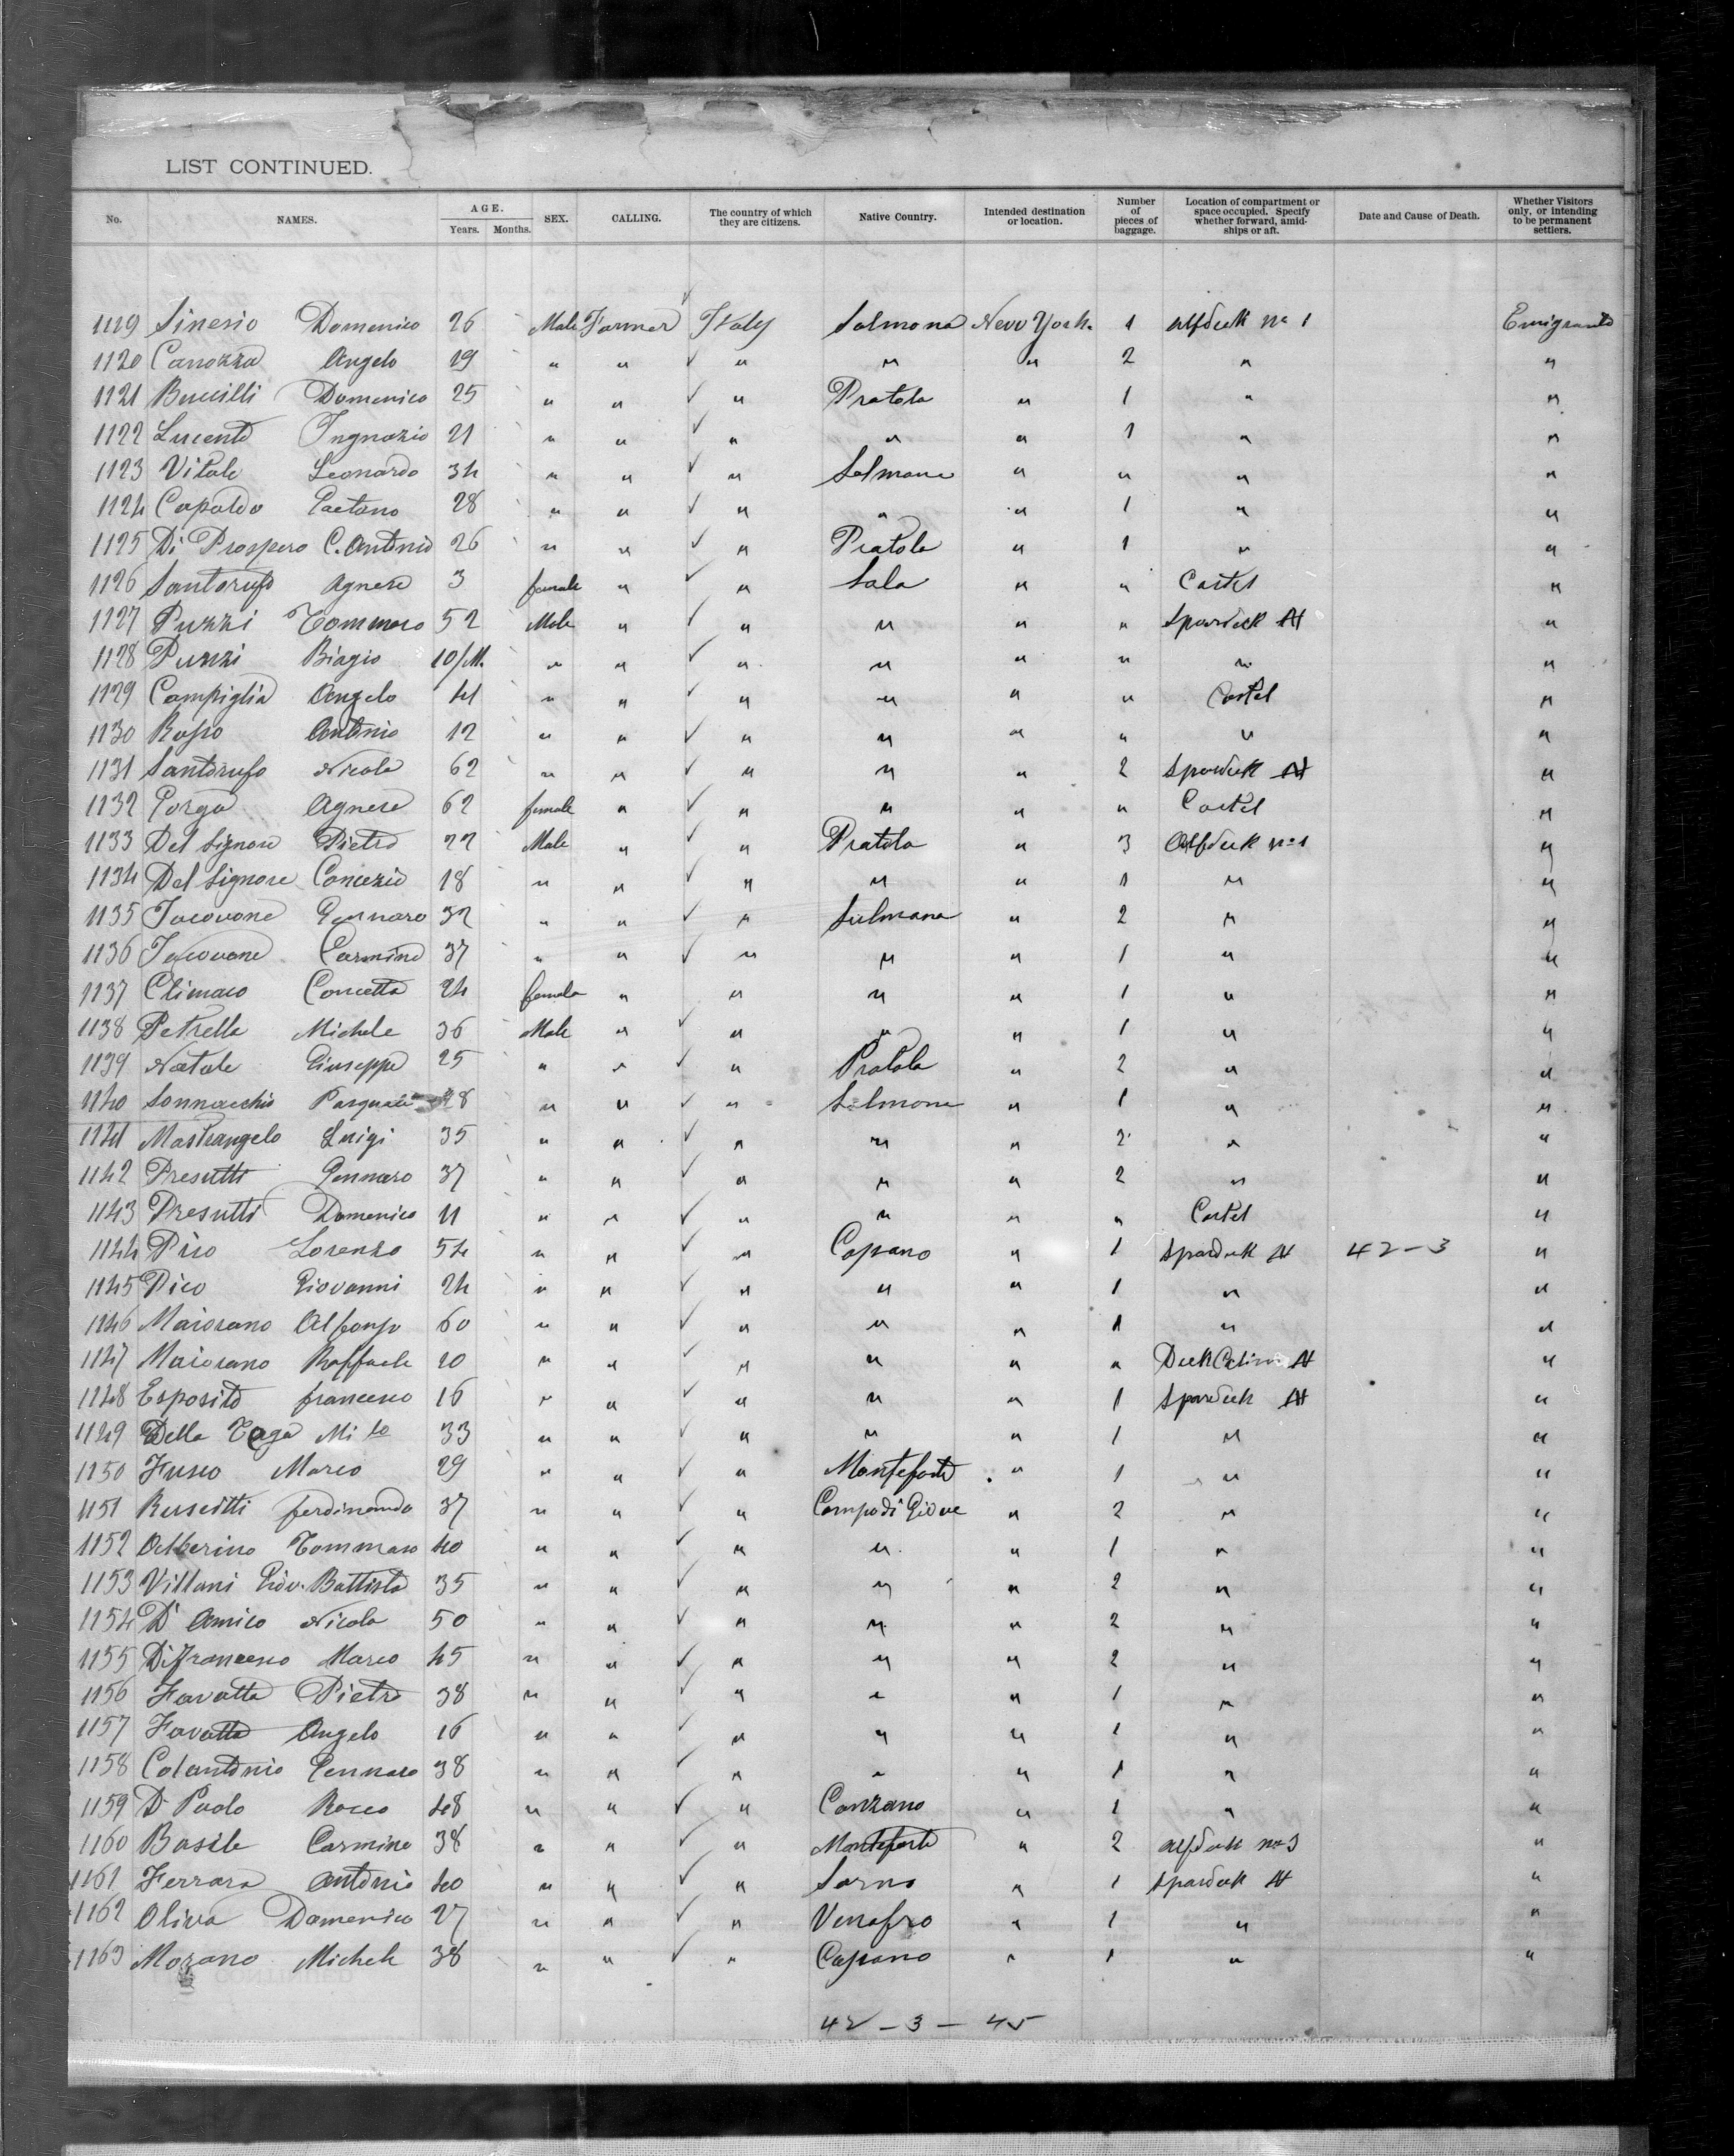 LIST CONTINUED.
No. NAMES. AGE. Years. Months. SEX. CALLING. The country of which they are citizens. Native Country. Intended destination or location. Number of pieces of baggage. Location of compartment or space occupied. Specify whether forward, amidships or aft. Date and Cause of Death. Whether Visitors only, or intending to be permanent settlers.
1119 Sinesio Domenico 26 Male Farmer Italy Solmona New York. 1 Alfdeck no 1 Emigrants
1120 Canozza Angelo 19 " " " " " 2 " "
1121 Buccilli Domenico 25 " " " Pratola " 1 " "
1122 Lucente Ingnazio 21 " " " " " 1 " "
1123 Vitale Leonardo 34 " " " Solmona " " " "
1124 Capaldo Gaetano 28 " " " " " 1 " "
1125 Di Prospero C. Antonio 26 " " " Pratola " 1 " "
1126 Santorufo Agnese 3 female " " Sala " " Castel "
1127 Puzzi Tommaso 52 Male " " " " " Spardeck H "
1128 Puzzi Biagio 10/M. " " " " " " " "
1129 Campiglia Angelo 41 " " " " " " Castel "
1130 Rosso Antonio 12 " " " " " " " "
1131 Santorufo Nicola 62 " " " " " 2 Spardeck H "
1132 Porga Agnese 62 female " " " " " Castel "
1133 Del Signore Pietro 22 Male " " Pratola " 3 Alfdeck no 1 "
1134 Del Signore Concezio 18 " " " " " 1 " "
1135 Jacovone Gennaro 32 " " " Sulmona " 2 " "
1136 Jacovone Carmine 37 " " " " " 1 " "
1137 Climaco Concetta 24 female " " " " 1 " "
1138 Petrella Michele 36 Male " " " " 1 " "
1139 Natale Giuseppe 25 " " " Pratola " 2 " "
1140 Sonnacchio Pasquale 28 " " " Solmona " 1 " "
1141 Mastrangelo Luigi 35 " " " " " 2 " "
1142 Presutti Gennaro 37 " " " " " 2 " "
1143 Presutti Domenico 11 " " " " " " Castel "
1144 Pico Lorenzo 54 " " " Capano " 1 Spardeck H 42-3 "
1145 Pico Giovanni 24 " " " " " 1 " "
1146 Maiorano Alfonso 60 " " " " " 1 " "
1147 Maiorano Raffaele 20 " " " " " " Deck H "
1148 Esposito francesco 16 " " " " " 1 Spardeck H "
1149 Della 33 " " " " " 1 " "
1150 Fusco Marco 29 " " " Monteforte " 1 " "
1151 Ruscitti ferdinando 37 " " " Campo di Giove " 2 " "
1152 Alberino Tommaso 40 " " " " " 1 " "
1153 Villani Giov. Battista 35 " " " " " 2 " "
1154 D'Amico Nicola 50 " " " " " 2 " "
1155 Difrancesco Marco 45 " " " " " 2 " "
1156 Favatta Pietro 38 " " " " " 1 " "
1157 Favatta Angelo 16 " " " " " 1 " "
1158 Colantonio Gennaro 38 " " " " " 1 " "
1159 D Paolo Rocco 48 " " " Canzano " 1 " "
1160 Basile Carmine 38 " " " Monteforte " 2 alfdeck no 3 "
1161 Ferrara Antonio 40 " " " Sarno " 1 Spardeck H "
1162 Oliva Domenico 27 " " " Venafro " 1 " "
1163 Morano Michele 38 " " " Capano " 1 " "
42 - 3 - 45